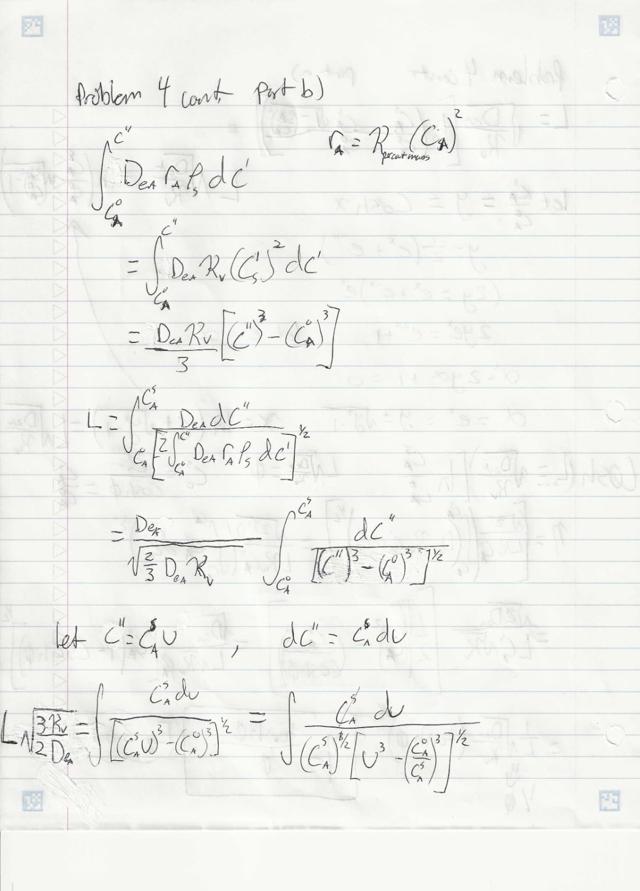 Problem 4 cont. part b)
r_A = k_{per cat mass} (C_A)^2
∫_{C_A^0}^{C''} D_{eA} r_A ρ_s dC'
= ∫_{C_A^0}^{C''} D_{eA} k_v (C_s')^2 dC'
= \frac{D_{eA} k_v}{3} [(C'')^3 - (C_A^0)^3]
L = ∫_{C_A^0}^{C_A^s} \frac{D_{eA} dC''}{[2 ∫_{C_A^0}^{C''} D_{eA} r_A ρ_s dC']^{1/2}}
= \frac{D_{eA}}{\sqrt{\frac{2}{3} D_{eA} k_v}} ∫_{C_A^0}^{C_A^s} \frac{dC''}{[(C'')^3 - (C_A^0)^3]^{1/2}}
Let C'' = C_A^s U , dC'' = C_A^s dU
L \sqrt{\frac{3 k_v}{2 D_{eA}}} = ∫ \frac{C_A^s dU}{[(C_A^s U)^3 - (C_A^0)^3]^{1/2}} = ∫ \frac{C_A^s dU}{(C_A^s)^{3/2} [U^3 - (\frac{C_A^0}{C_A^s})^3]^{1/2}}